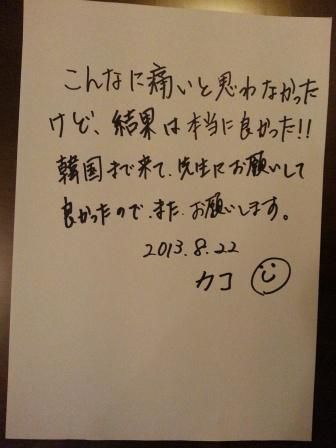 こんなに痛いと思わなかった
けど、結果は本当に良かった!!
韓国まで来て、先生にお願いして
良かったので、また、お願いします。
2013.8.22
カコ